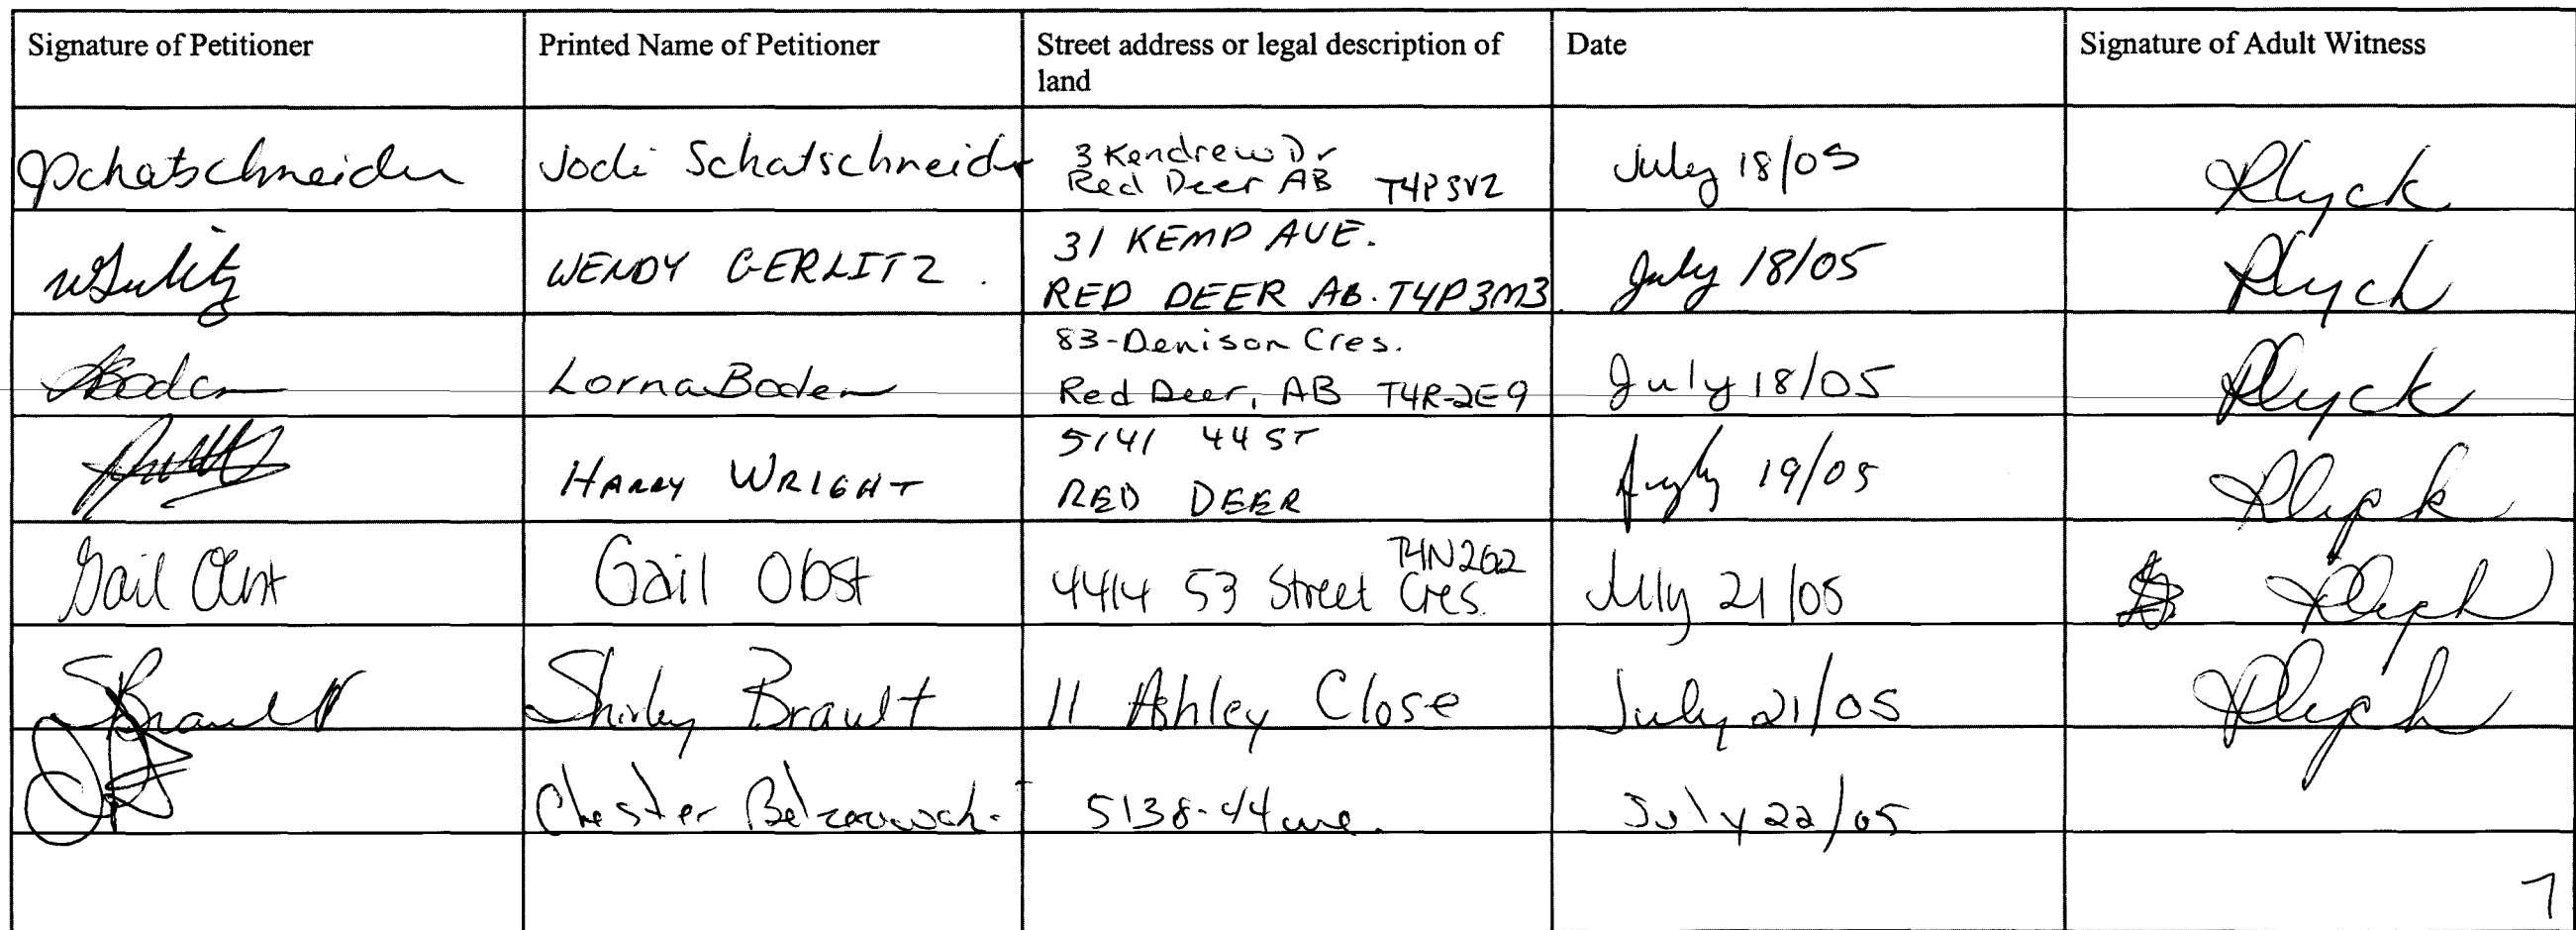 Signature of Petitioner
Printed Name of Petitioner
Street address or legal description of
land
Date
Signature of Adult Witness
JSchatschneider
Jodi Schatschneider
3 Kendrew Dr
Red Deer AB T4P3V2
July 18/05
Plyck
WGerlitz
WENDY GERLITZ.
31 KEMP AVE.
RED DEER AB. T4P3M3
July 18/05
Plyck
LBoden
Lorna Boden
83-Denison Cres.
Red Deer, AB T4R-2E9
July 18/05
Plyck
HARRY WRIGHT
5141 44 ST
RED DEER
July 19/05
Plyck
Gail Obst
Gail Obst
T4N2G2
4414 53 Street Cres.
July 21/05
Plyck
SBrault
Shirley Brault
11 Ashley Close
July 21/05
Plyck
Chester
5138-44 ave.
July 22/05
7